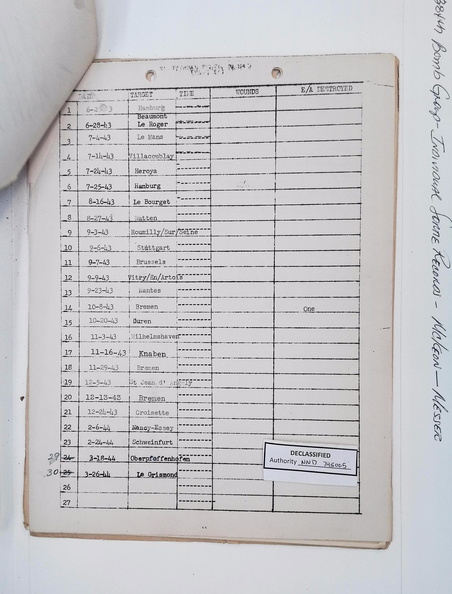 384th Bomb Group - Individual Sortie Records - McKeon - Messer
DATE TARGET TIME WOUNDS E/A DESTROYED
1 Hamburg
2 6-28-43 Beaumont Le Roger
3 7-4-43 Le Mans
4 7-14-43 Villacoublay
5 7-24-43 Heroya
6 7-25-43 Hamburg
7 8-16-43 Le Bourget
8 8-27-43 Watten
9 9-3-43 Romilly/Sur/Seine
10 9-6-43 Stuttgart
11 9-7-43 Brussels
12 9-9-43 Vitry/En/Artois
13 9-23-43 Nantes
14 10-8-43 Bremen One
15 10-20-43 Duren
16 11-3-43 Wilhelmshaven
17 11-16-43 Knaben
18 11-29-43 Bremen
19 12-5-43 St Jean d' Angely
20 12-13-43 Bremen
21 12-24-43 Croisette
22 2-6-44 Nancy-Essey
23 2-24-44 Schweinfurt
29 24 3-18-44 Oberpfaffenhofen
30 25 3-26-44 Le Grismond
26
27
DECLASSIFIED
Authority NND 745005